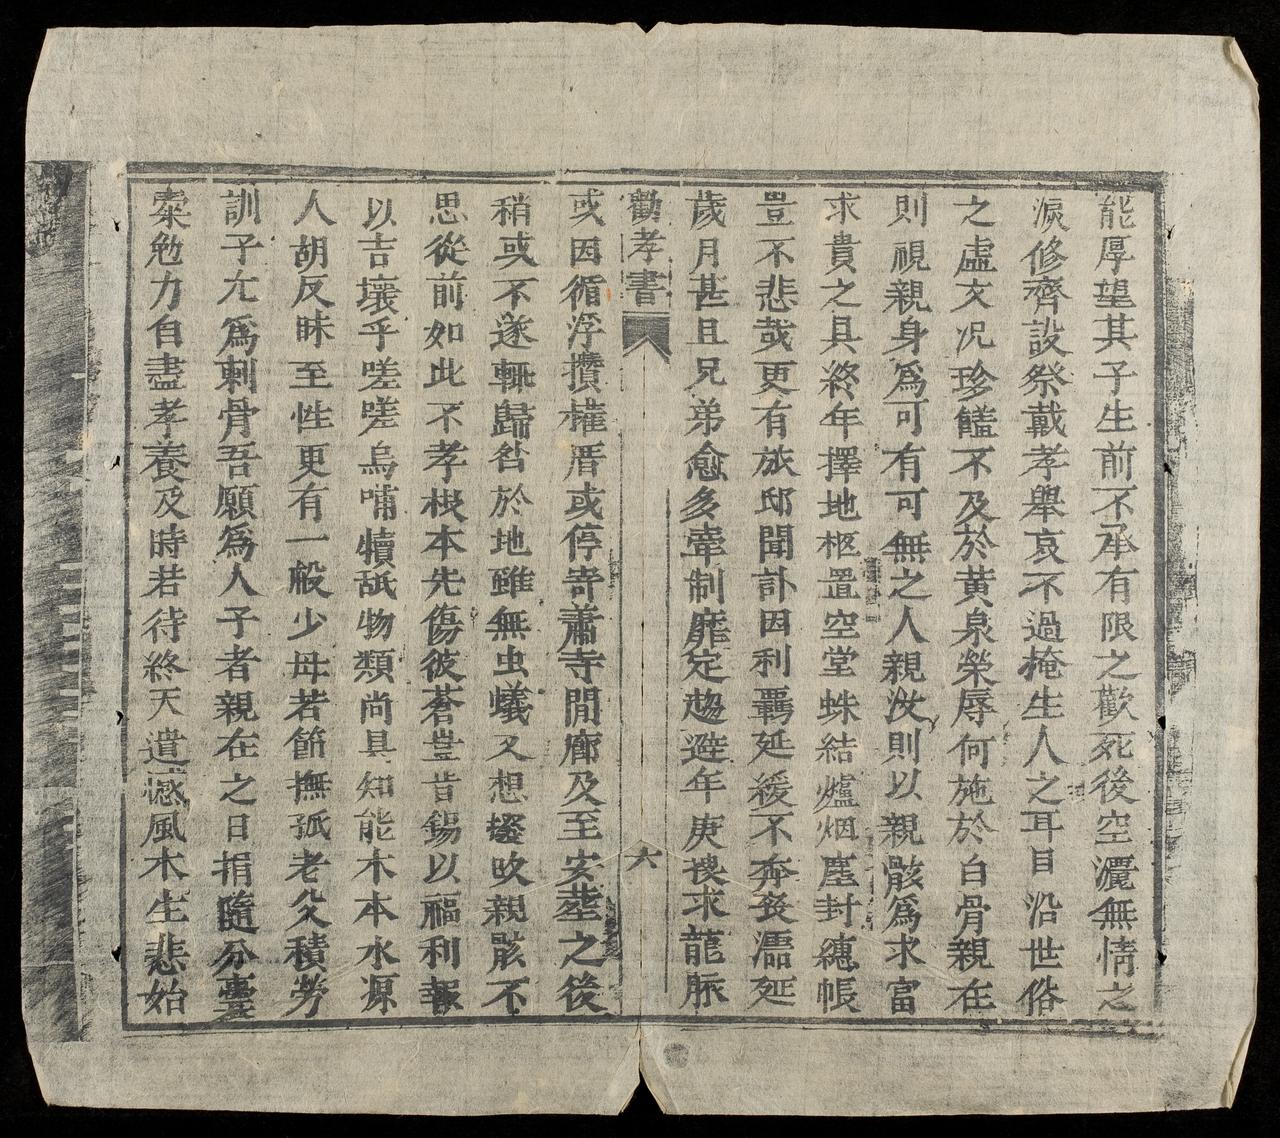 能厚望其子生前不承有限之歡死後空灑無情之
淚修齊設祭戴孝舉哀不過掩生人之耳目沿世俗
之虛文况珍饈不及於黃泉榮辱何施於白骨親在
則視親身爲可有可無之人親沒則以親骸爲求富
求貴之具終年擇地柩置空堂蛛結爐烟塵封繐帳
豈不悲哉更有旅邸聞訃因利羈延緩不奔喪濡延
歲月甚且兄弟愈多牽制靡定趨避年庚搜求龍脈
勸孝書
六
或因循浮攢權厝或停寄蕭寺閒廊及至安塟之後
稍或不遂輒歸咎於地雖無虫蟻又想墾改親骸不
思從前如此不孝根本先傷彼蒼豈肯錫以福利報
以吉壤乎嗟嗟烏哺犢舐物類尚具知能木本水源
人胡反昧至性更有一般少母若節撫孤老父積勞
訓子尤爲刺骨吾願爲人子者親在之日捐隨分囊
橐勉力自盡孝養及時若待終天遺憾風木生悲始